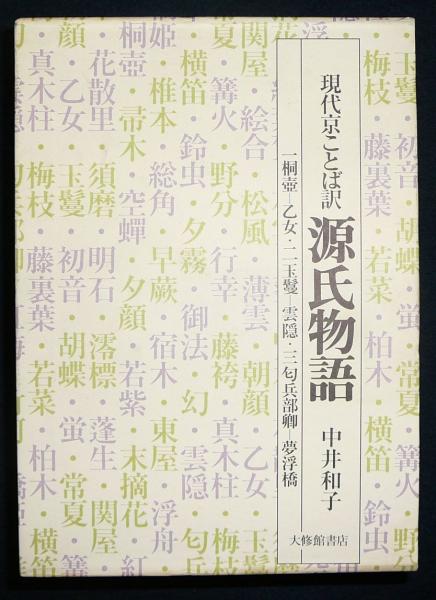 玉鬘・初音・胡蝶・蛍・常夏・篝火・野分・
梅枝・藤裏葉・若菜・柏木・横笛・鈴虫
現代京ことば訳 源氏物語 中井和子
一桐壺―乙女・二玉鬘 雲隠・三匂兵部卿 夢浮橋
大修館書店
関屋・絵合・松風・薄雲・朝顔・乙女・玉鬘
常夏・篝火・野分・行幸・藤袴・真木柱・梅
横笛・鈴虫・夕霧・御法・幻・雲隠・匂兵
姫・椎本・総角・早蕨・宿木・東屋・浮舟
桐壺・帚木・空蟬・夕顔・若紫・末摘花・紅
・花散里・須磨・明石・澪標・蓬生・関屋・
朝顔・乙女・玉鬘・初音・胡蝶・蛍・常夏・
・真木柱・梅枝・藤裏葉・若菜・柏木・